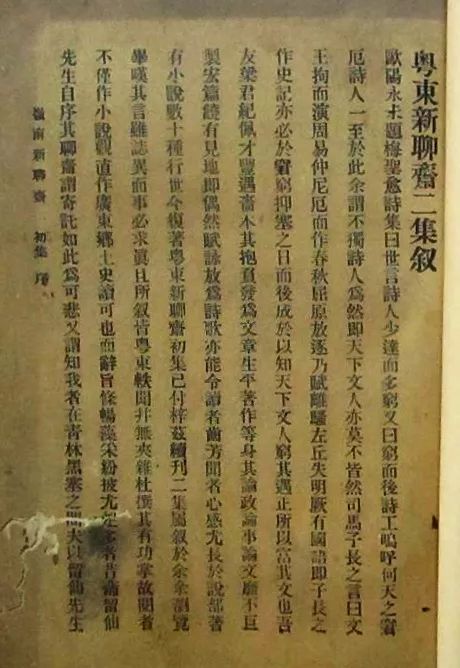 粤東新聊齋二集叙
歐陽永未題梅聖愈詩集曰世言詩人少達而多窮又曰窮而後詩工嗚呼何天之窘
厄詩人一至於此余謂不獨詩人爲然即天下文人亦莫不皆然司馬子長之言曰文
王拘而演周易仲尼厄而作春秋屈原放逐乃賦離騷左丘失明厥有國語即子長之
作史記亦必於窘窮抑塞之日而後成於以知天下文人窮其遇正所以富其文也吾
友梁君紀佩才豐遇嗇本其抱負發爲文章生平著作等身其論政論事論文靡不巨
製宏篇饒有見地即偶然賦詠放爲詩歌亦能令讀者齒芳聞者心感尤長於說部著
有小說數十種行世今復著粤東新聊齋初集已付梓茲續刊二集屬叙於余余瀏覽
畢嘆其言雖誌異而事必求眞且所叙皆粤東軼聞并無夾雜杜撰其有功掌故閱者
不僅作小說觀直作廣東鄉土史讀可也而辭旨條暢藻采紛披尤其多者昔蒲留仙
先生自序其聊齋謂寄託如此爲可悲又謂知我者在青林黑塞之間夫以留仙先生
嶺南新聊齋 初集 序